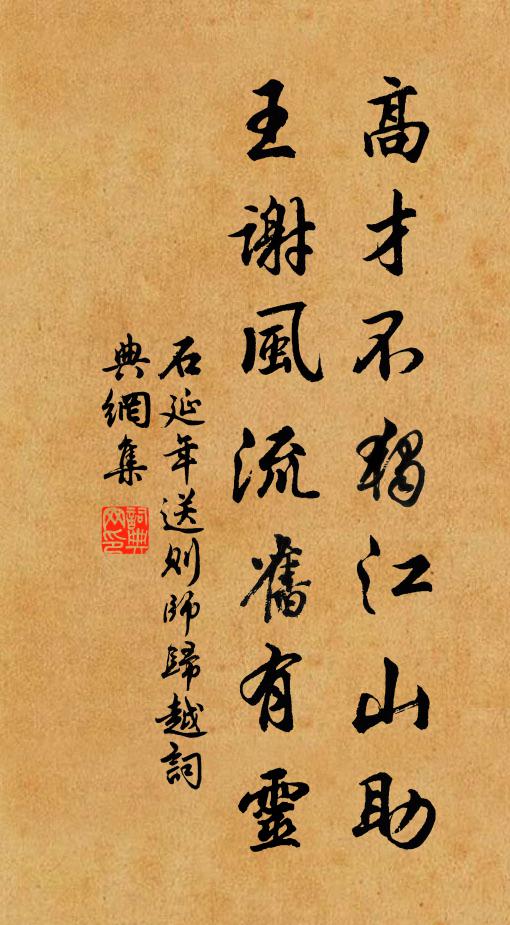 高才不獨江山助
王謝風流舊有靈
石延年送則師歸越詞
典網集
詞典網印